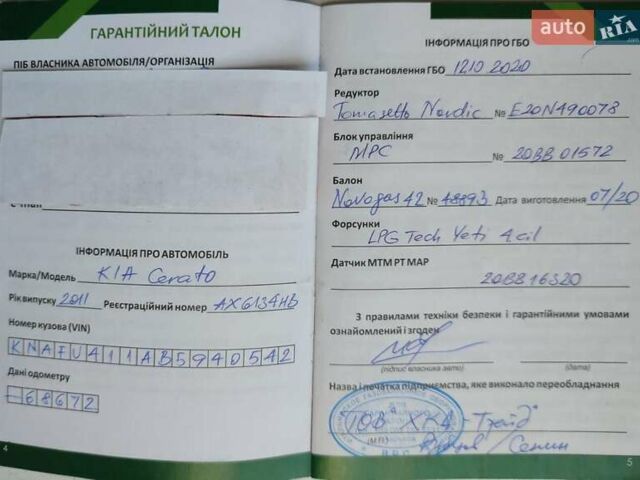 ГАРАНТІЙНИЙ ТАЛОН
ПІБ ВЛАСНИКА АВТОМОБІЛЯ/ОРГАНІЗАЦІЯ
e-mail
ІНФОРМАЦІЯ ПРО АВТОМОБІЛЬ
Марка/Модель KIA Cerato
Рік випуску 2011 Реєстраційний номер AX6134HB
Номер кузова (VIN)
KNAFU411AB5940542
Дані одометру
-68672
4
auto RIA .com
ІНФОРМАЦІЯ ПРО ГБО
Дата встановлення ГБО 12.10 2020
Редуктор
Tomasetto Nordic № E20N490078
Блок управління
MPC № 20BB01572
Балон
Novogas 42 № 48893 Дата виготовлення 07/20
Форсунки
LPG Tech Yeti 4cil
Датчик МТМ РТ МАР
20BB16320
З правилами техніки безпеки і гарантійними умовами
ознайомлений і згоден
(підпис власника авто) (дата)
Назва і печатка підприємства, яке виконало переобладнання
ТОВ ХКА-Трейд
(М.П.)
5